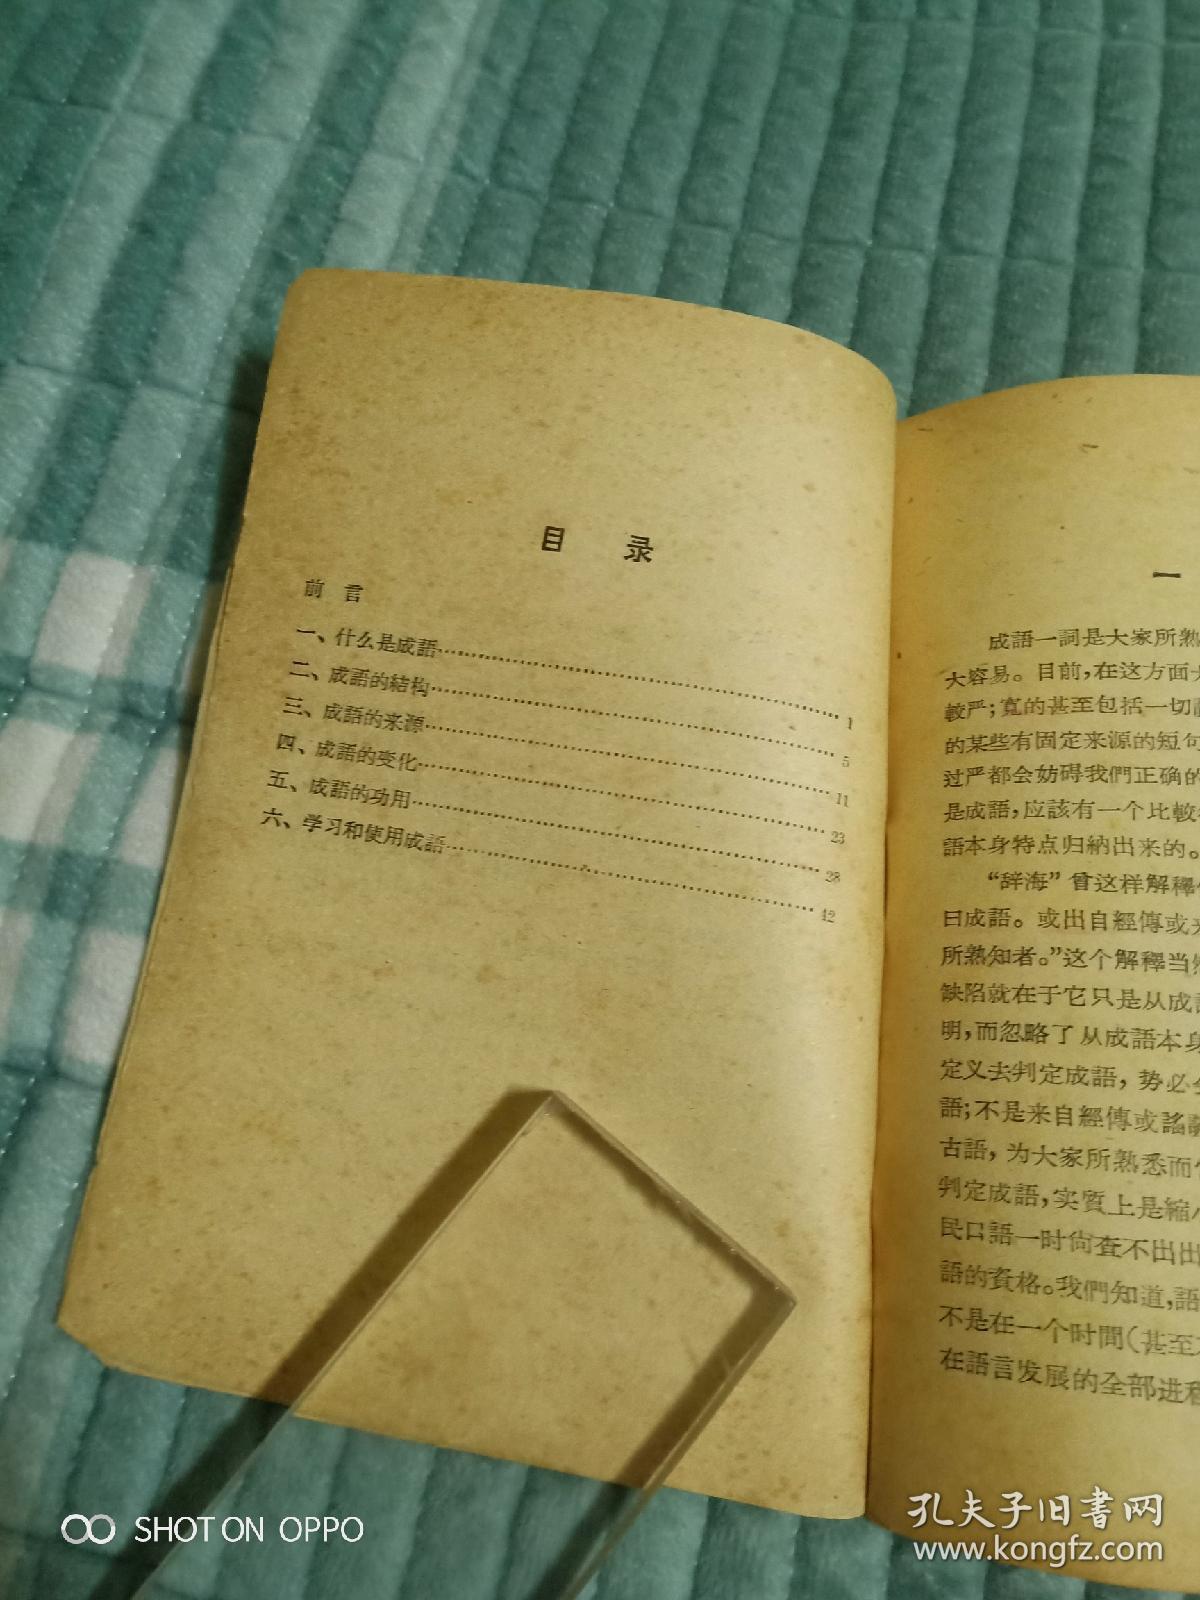 目 录
前 言
一、什么是成語 1
二、成語的結构 5
三、成語的来源 11
四、成語的变化 23
五、成語的功用 28
六、学习和使用成語 42
一
成語一詞是大家所熟
大容易。目前,在这方面
較严;寬的甚至包括一切
的某些有固定来源的短句
过严都会妨碍我們正确的
是成語,应該有一个比較
語本身特点归納出来的。
“辞海”曾这样解釋
曰成語。或出自經傳或
所熟知者。”这个解釋当然
缺陷就在于它只是从成語
明,而忽略了从成語本身
定义去判定成語,势必
語;不是来自經傳或謠諺
古語,为大家所熟悉而
判定成語,实質上是縮小
民口語一时尙查不出出
語的資格。我們知道,語
不是在一个时間(甚至
在語言发展的全部进程
SHOT ON OPPO
孔夫子旧書网
www.kongfz.com